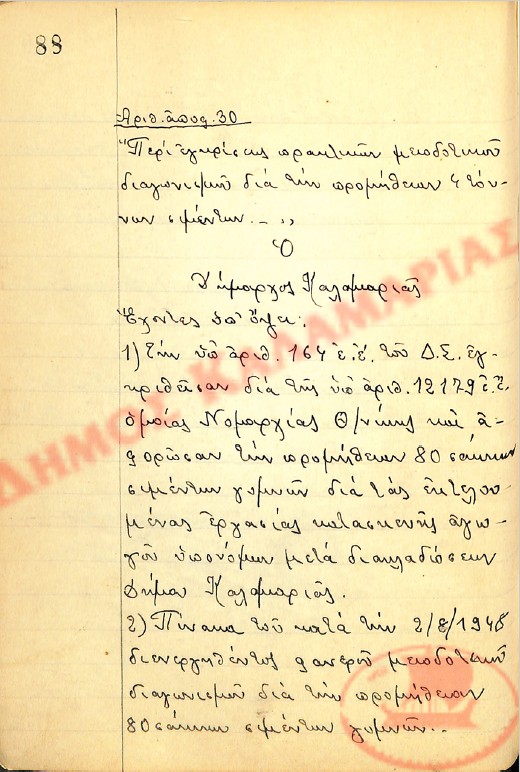 88
Ἀριθ. ἀποφ. 30
"Περί ἐγκρίσεως πρακτικῶν μειοδοτικοῦ
διαγωνισμοῦ διά τήν προμήθειαν 4 τόν-
νων σιμέντων.- "
Ὁ
Δήμαρχος Καλαμαριᾶς
Ἔχοντες ὑπ' ὄψει:
1) Τήν ὑπ' ἀριθ. 164 ἐ.ἔ. τοῦ Δ.Σ. ἐγ-
κριθεῖσαν διά τῆς ὑπ' ἀριθ. 12179 ἐ.ἔ.
ὁμοίας Νομαρχίας Θ/νίκης καί ἀ-
φορῶσαν τήν προμήθειαν 80 σάκκων
σιμέντων γυμνῶν διά τάς ἐκτελου-
μένας ἐργασίας κατασκευῆς ἀγω-
γοῦ ὑπονόμων μετά διακλαδώσεων
Δήμου Καλαμαριᾶς.
2) Πίνακα τοῦ κατά τήν 2/8/1948
διενεργηθέντος φανεροῦ μειοδοτικοῦ
διαγωνισμοῦ διά τήν προμήθειαν
80 σάκκων σιμέντων γυμνῶν..
ΔΗΜΟΣ ΚΑΛΑΜΑΡΙΑΣ